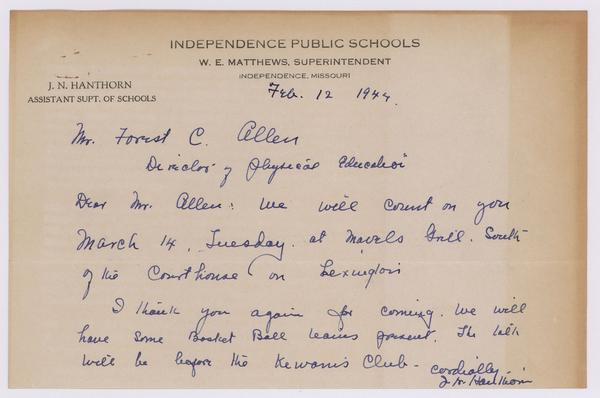 INDEPENDENCE PUBLIC SCHOOLS
W. E. MATTHEWS, SUPERINTENDENT
INDEPENDENCE, MISSOURI
J. N. HANTHORN
ASSISTANT SUPT. OF SCHOOLS
Feb. 12 1944.
Mr. Forest C. Allen
Director of Physical Education
Dear Mr. Allen: We will count on you
March 14, Tuesday. at Mavels Grill. South
of the Courthouse on Lexington
I thank you again for coming. We will
have some Basket Ball teams present. The talk
will be before the Kewanis Club -
Cordially -
J. N. Hanthorn